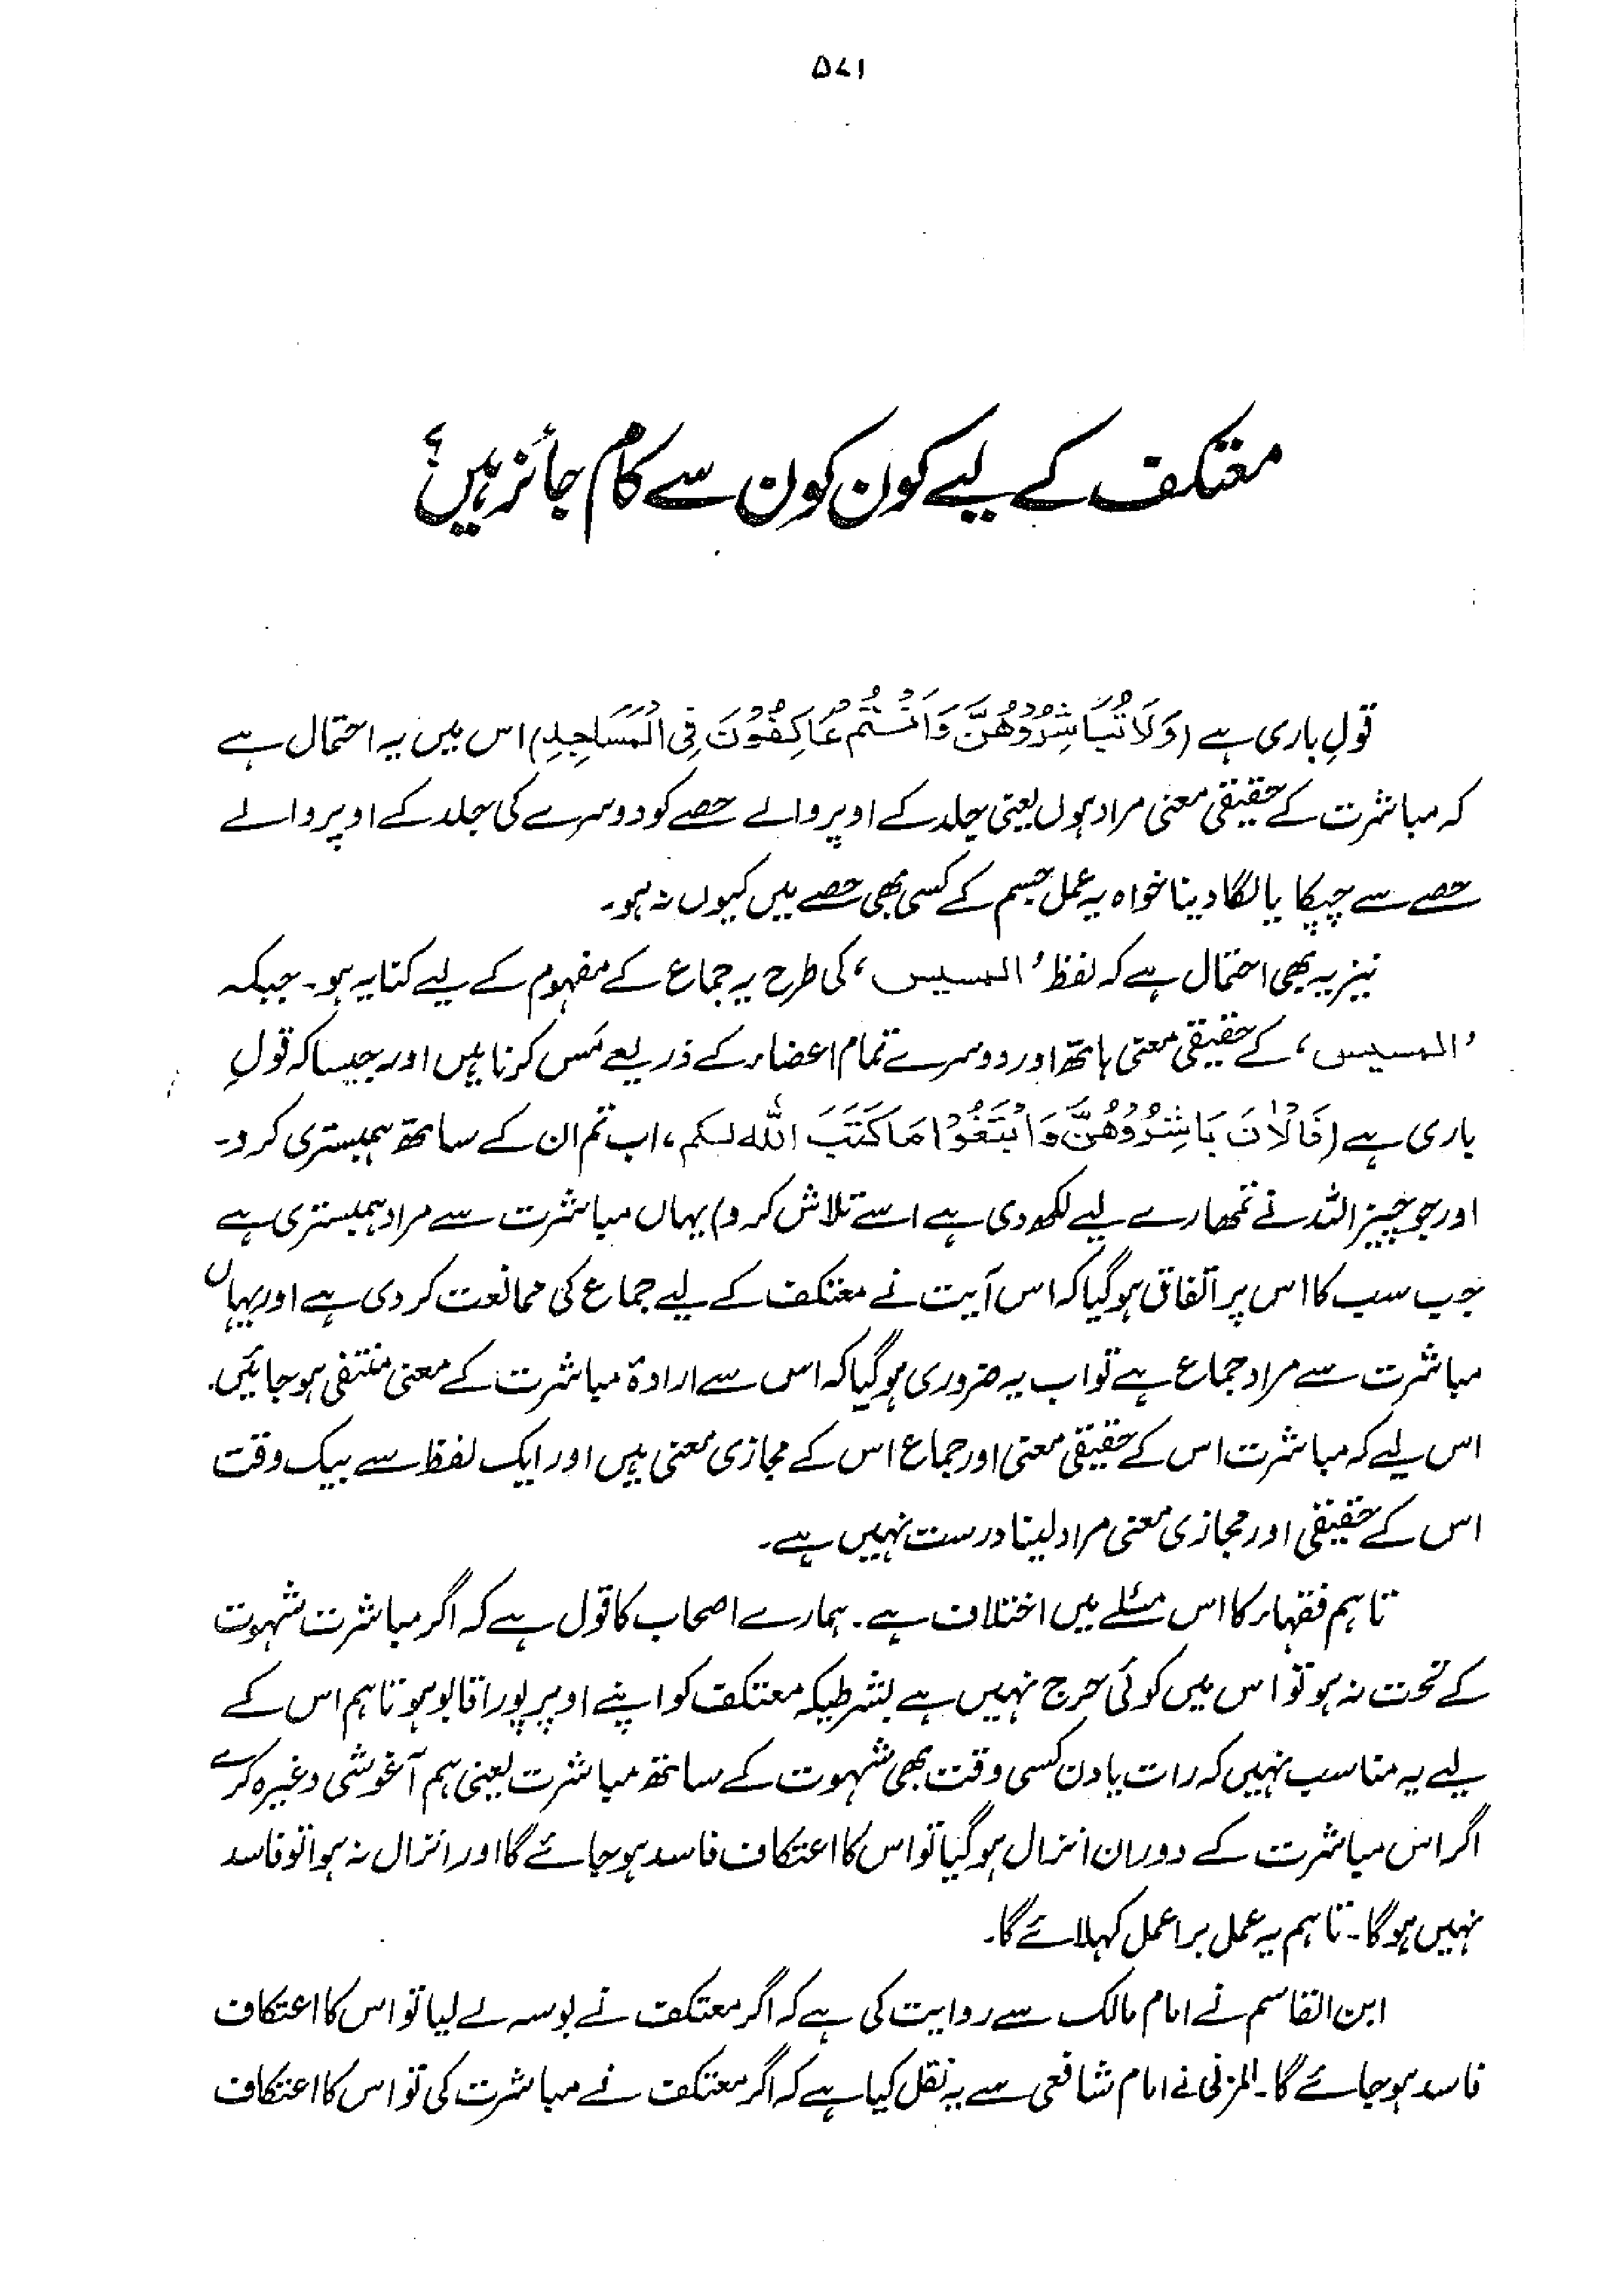 ۵۷۱
معتکف کے لیے کون کون سے کام جائز ہیں؟
قولِ باری ہے (وَلَا تُبَاشِرُوْهُنَّ وَاَنْتُمْ عَاكِفُوْنَ فِي الْمَسَاجِدِ) اس میں یہ احتمال ہے
کہ مباشرت کے حقیقی معنی مراد ہوں یعنی جلد کے اوپر والے حصے کو دوسرے کی جلد کے اوپر والے
حصے سے چپکا یا لگا دینا خواہ یہ عمل جسم کے کسی بھی حصے میں کیوں نہ ہو۔
نیز یہ بھی احتمال ہے کہ لفظ ’المسیس‘ کی طرح یہ جماع کے مفہوم کے لیے کنایہ ہو۔ جبکہ
’المسیس‘ کے حقیقی معنی ہاتھ اور دوسرے تمام اعضاء کے ذریعے مَس کرنا ہیں اور جیسا کہ قولِ
باری ہے (فَالْاٰنَ بَاشِرُوْهُنَّ وَابْتَغُوْا مَا كَتَبَ اللّٰهُ لكم، اب تم ان کے ساتھ ہمبستری کرو۔
اور جو چیز اللہ نے تمھارے لیے لکھ دی ہے اسے تلاش کرو) یہاں مباشرت سے مراد ہمبستری ہے
جب سب کا اس پر اتفاق ہو گیا کہ اس آیت نے معتکف کے لیے جماع کی ممانعت کر دی ہے اور یہاں
مباشرت سے مراد جماع ہے تو اب یہ ضروری ہو گیا کہ اس سے ارادۂ مباشرت کے معنی منتفی ہو جائیں۔
اس لیے کہ مباشرت اس کے حقیقی معنی اور جماع اس کے مجازی معنی ہیں اور ایک لفظ سے بیک وقت
اس کے حقیقی اور مجازی معنی مراد لینا درست نہیں ہے۔
تاہم فقہاء کا اس مسئلے میں اختلاف ہے۔ ہمارے اصحاب کا قول ہے کہ اگر مباشرت شہوت
کے تحت نہ ہو تو اس میں کوئی حرج نہیں ہے بشرطیکہ معتکف کو اپنے اوپر پورا قابو ہو تاہم اس کے
لیے یہ مناسب نہیں کہ رات یا دن کسی وقت بھی شہوت کے ساتھ مباشرت یعنی ہم آغوشی وغیرہ کرے
اگر اس مباشرت کے دوران انزال ہو گیا تو اس کا اعتکاف فاسد ہو جائے گا اور انزال نہ ہوا تو فاسد
نہیں ہو گا۔ تاہم یہ عمل برا عمل کہلائے گا۔
ابن القاسم نے امام مالک سے روایت کی ہے کہ اگر معتکف نے بوسہ لے لیا تو اس کا اعتکاف
فاسد ہو جائے گا۔ المزنی نے امام شافعی سے یہ نقل کیا ہے کہ اگر معتکف نے مباشرت کی تو اس کا اعتکاف